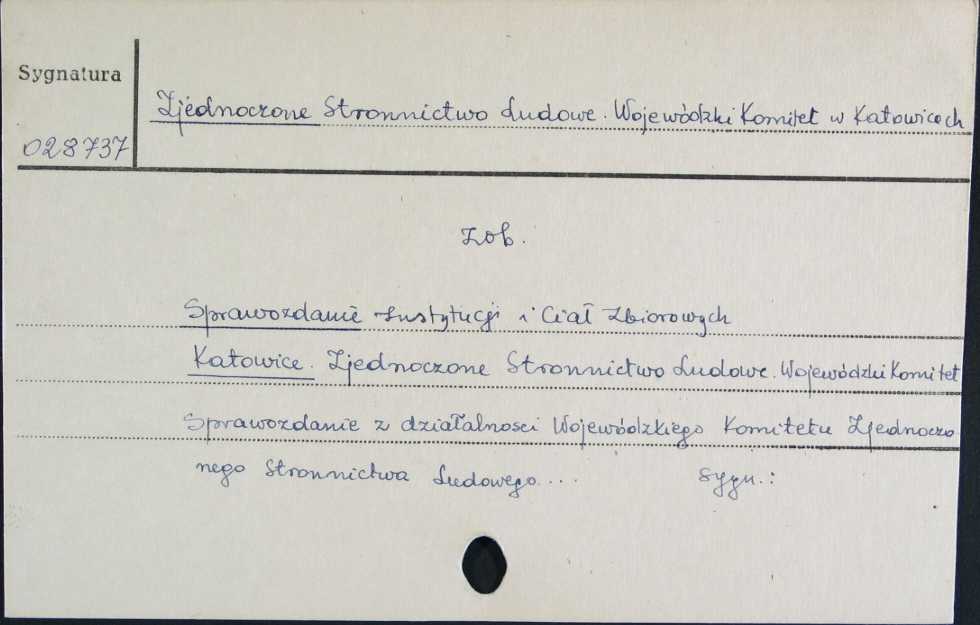 Sygnatura
Zjednoczone Stronnictwo Ludowe. Wojewódzki Komitet w Katowicach
028737
zob.
Sprawozdanie Instytucji i Ciał Zbiorowych
Katowice. Zjednoczone Stronnictwo Ludowe. Wojewódzki Komitet
Sprawozdanie z działalności Wojewódzkiego Komitetu Zjednoczo
nego Stronnictwa Ludowego... sygn.: